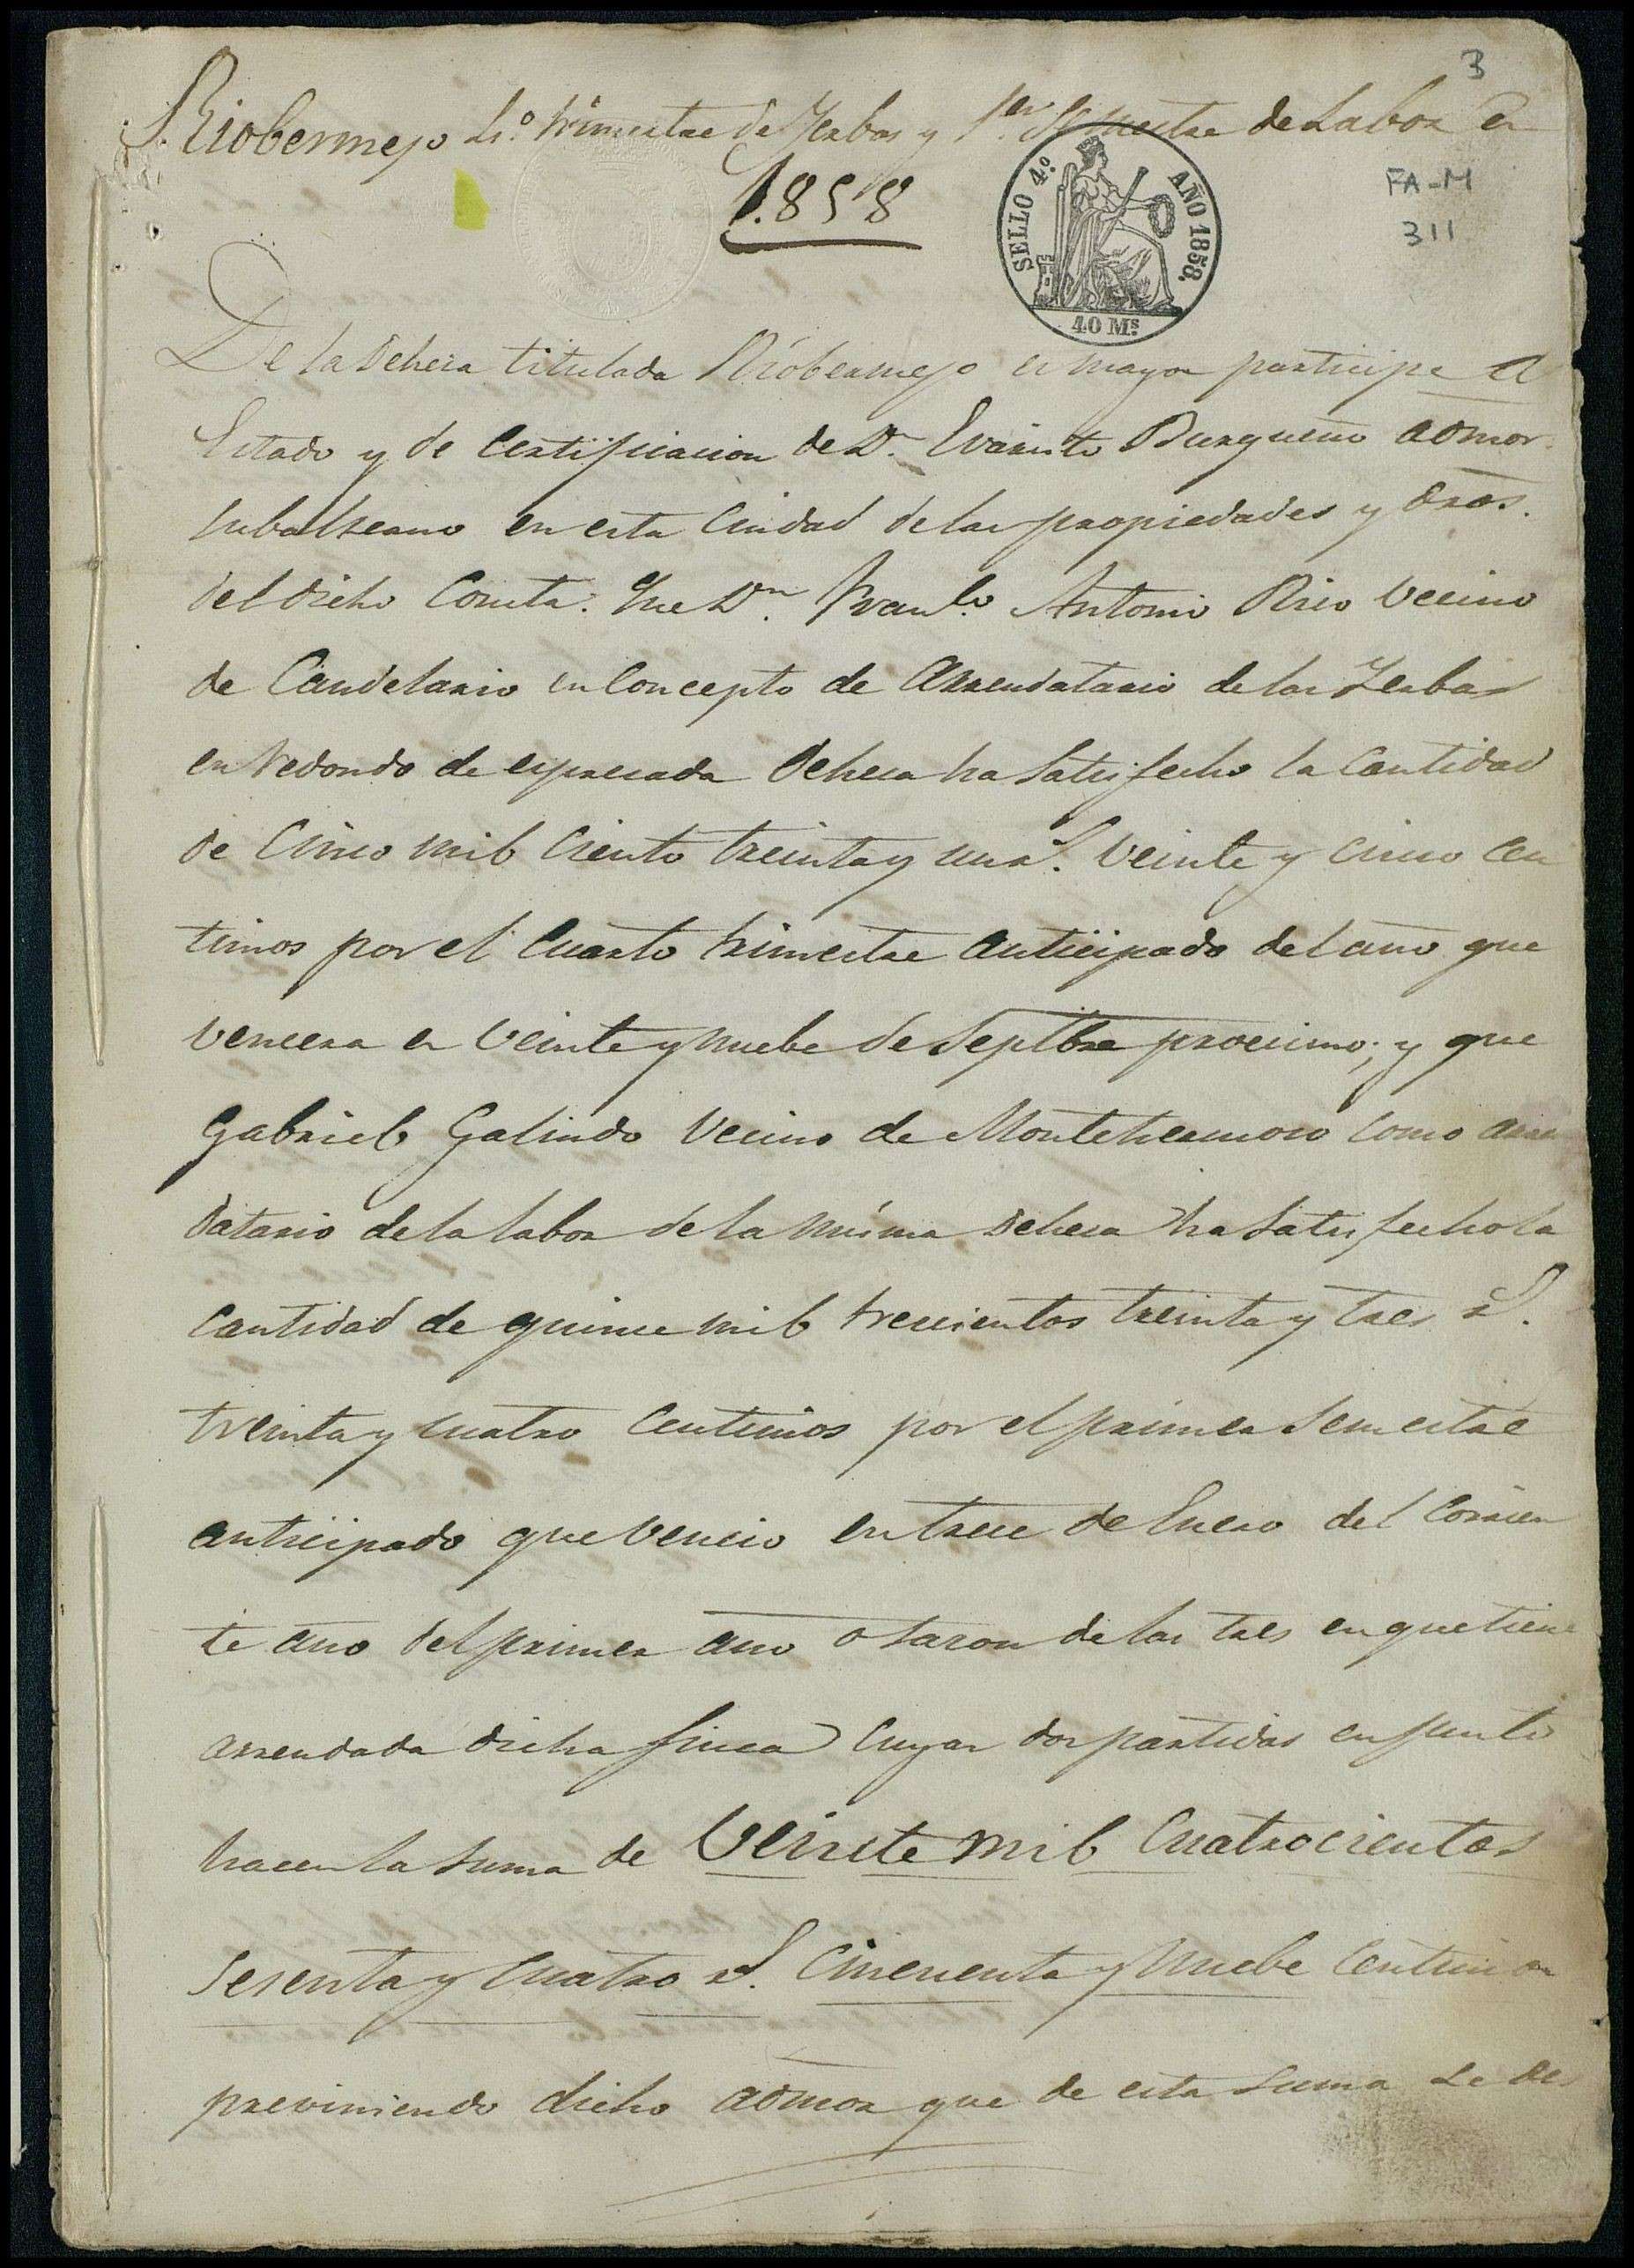 3
Riobermejo 4.º trimestre de Yerbas y 1.er Semestre de Labor en
1.858
SELLO 4.º AÑO 1858.
40 Ms
FA-M
311
De la Dehesa titulada Riobermejo es mayor participe el
Estado y de Certificacion de Dn. Evaristo Burgueño admor
subalterno en esta Ciudad de las propiedades y dros.
del dicho Consta: Que Dn. Franco. Antonio Rico Vecino
de Candelario en Concepto de Arrendatario de las Yerbas
en redondo de espresada dehesa ha Satisfecho la Cantidad
de Cinco mil Ciento treinta y un rs. Veinte y cinco cen
timos por el Cuarto trimestre anticipado del año que
vencera en Veinte y nuebe de Septbre procsimo; y que
Gabriel Galindo Vecino de Montehermoso como arren
datario de la labor de la misma dehesa ha satisfecho la
Cantidad de quince mil trescientos treinta y tres rs.
treinta y cuatro Centimos por el primer Semestre
anticipado que vencio en trece de Enero del Corrien
te año del primer año o sazon de las tres en que tiene
arrendada dicha finca Cuyas dos partidas en junto
hacen la suma de Veinte mil Cuatrocientos
Sesenta y Cuatro rs. Cincuenta y nuebe Centimos
previniendo dicho admor que de esta suma se de